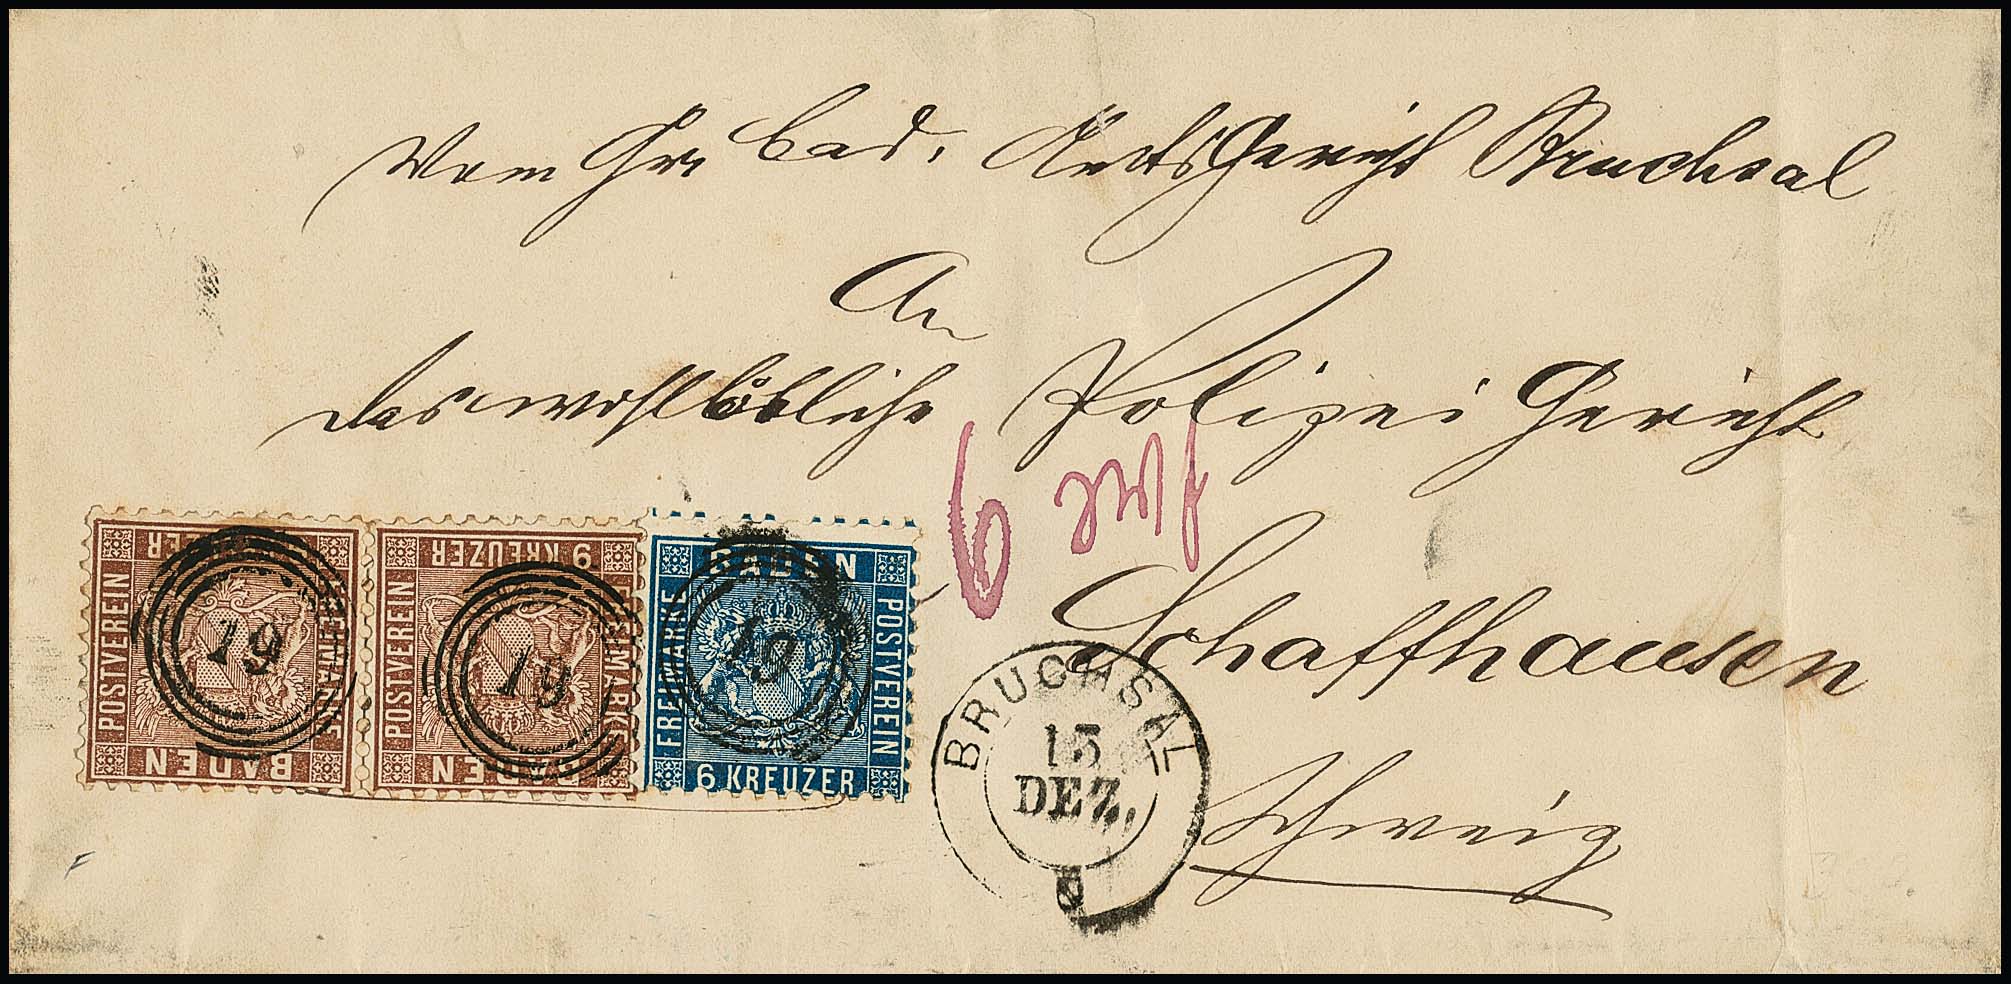 Vom Gr. bad. Amtsgericht Bruchsal
An
das wohllöbliche Polizei Gericht
6
Schaffhausen
Schweiz
9 KREUZER
POSTVEREIN
FREIMARKE
BADEN
19
9 KREUZER
POSTVEREIN
FREIMARKE
BADEN
19
BADEN
FREIMARKE
POSTVEREIN
6 KREUZER
19
BRUCHSAL
15
DEZ.